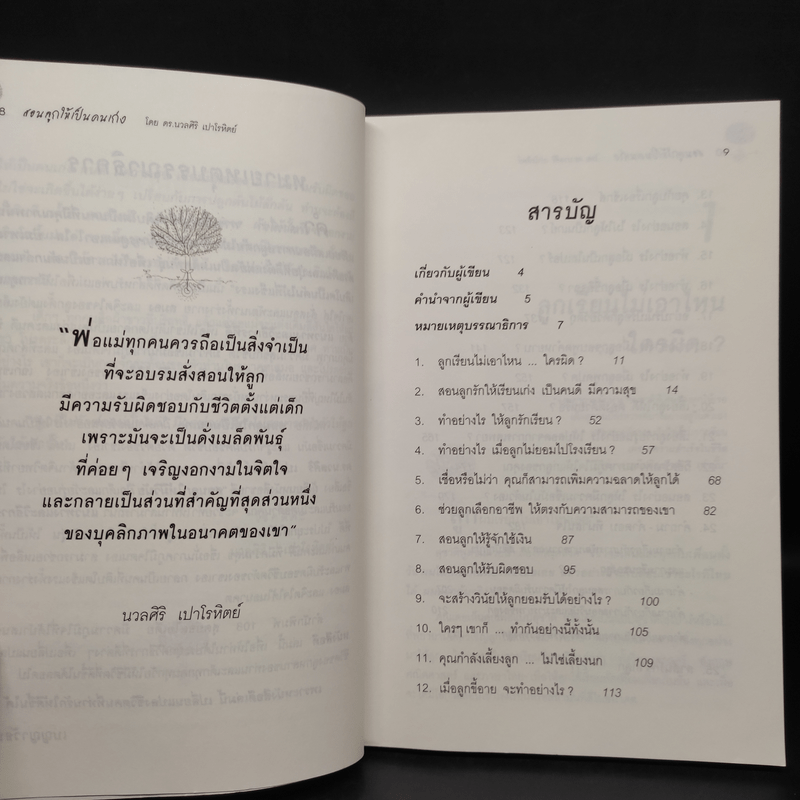 8 สอนลูกให้เป็นคนเก่ง โดย ดร.นวลศิริ เปาโรหิตย์
"พ่อแม่ทุกคนควรถือเป็นสิ่งจำเป็น
ที่จะอบรมสั่งสอนให้ลูก
มีความรับผิดชอบกับชีวิตตั้งแต่เด็ก
เพราะมันจะเป็นดั่งเมล็ดพันธุ์
ที่ค่อยๆ เจริญงอกงามในจิตใจ
และกลายเป็นส่วนที่สำคัญที่สุดส่วนหนึ่ง
ของบุคลิกภาพในอนาคตของเขา"
นวลศิริ เปาโรหิตย์
๑
สารบัญ
เกี่ยวกับผู้เขียน 4
คำนำจากผู้เขียน 5
หมายเหตุบรรณาธิการ 7
1. ลูกเรียนไม่เอาไหน ... ใครผิด ? 11
2. สอนลูกรักให้เรียนเก่ง เป็นคนดี มีความสุข 14
3. ทำอย่างไร ให้ลูกรักเรียน ? 52
4. ทำอย่างไร เมื่อลูกไม่ยอมไปโรงเรียน ? 57
5. เชื่อหรือไม่ว่า คุณก็สามารถเพิ่มความฉลาดให้ลูกได้ 68
6. ช่วยลูกเลือกอาชีพ ให้ตรงกับความสามารถของเขา 82
7. สอนลูกให้รู้จักใช้เงิน 87
8. สอนลูกให้รับผิดชอบ 95
9. จะสร้างวินัยให้ลูกยอมรับได้อย่างไร ? 100
10. ใครๆ เขาก็ ... ทำกันอย่างนี้ทั้งนั้น 105
11. คุณกำลังเลี้ยงลูก ... ไม่ใช่เลี้ยงนก 109
12. เมื่อลูกขี้อาย จะทำอย่างไร ? 113